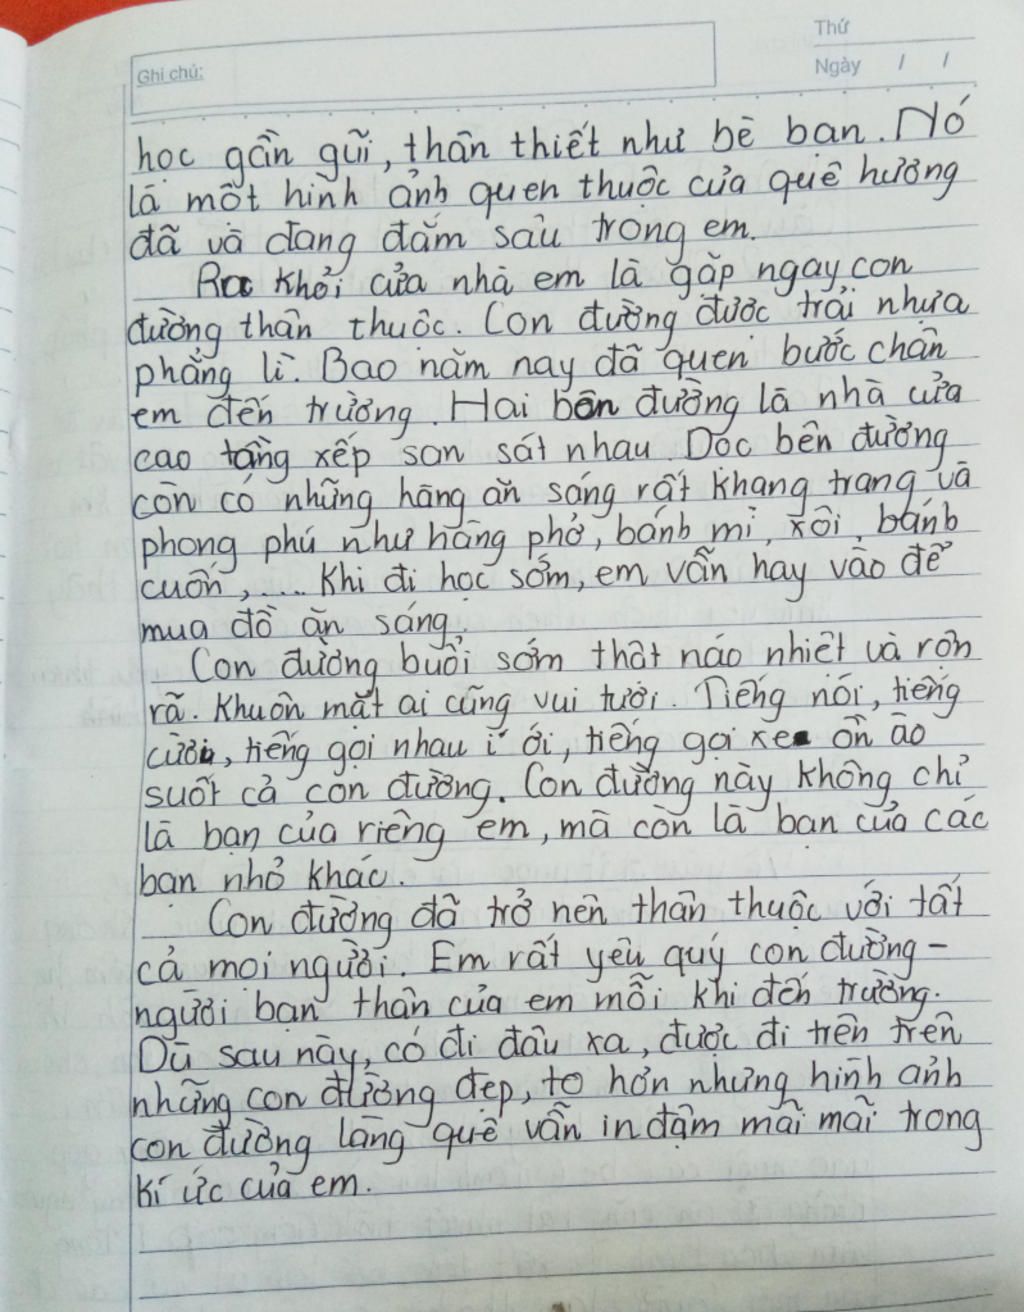 Ghi chú:
Thứ
Ngày / /
học gần gũi, thân thiết như bè bạn. Nó
là một hình ảnh quen thuộc của quê hương
đã và đang đằm sâu trong em.
Ra khỏi cửa nhà em là gặp ngay con
đường thân thuộc. Con đường được trải nhựa
phẳng lì. Bao năm nay đã quen bước chân
em đến trường. Hai bên đường là nhà cửa
cao tầng xếp san sát nhau Dọc bên đường
còn có những hàng ăn sáng rất khang trang và
phong phú như hàng phở, bánh mì, xôi, bánh
cuốn,.... Khi đi học sớm, em vẫn hay vào để
mua đồ ăn sáng.
Con đường buổi sớm thật náo nhiệt và rộn
rã. Khuôn mặt ai cũng vui tươi. Tiếng nói, tiếng
cười, tiếng gọi nhau í ới, tiếng gọi xe ồn ào
suốt cả con đường. Con đường này không chỉ
là bạn của riêng em, mà còn là bạn của các
bạn nhỏ khác.
Con đường đã trở nên thân thuộc với tất
cả mọi người. Em rất yêu quý con đường -
người bạn thân của em mỗi khi đến trường.
Dù sau này, có đi đâu xa, được đi trên trên
những con đường đẹp, to hơn nhưng hình ảnh
con đường làng quê vẫn in đậm mãi mãi trong
kí ức của em.